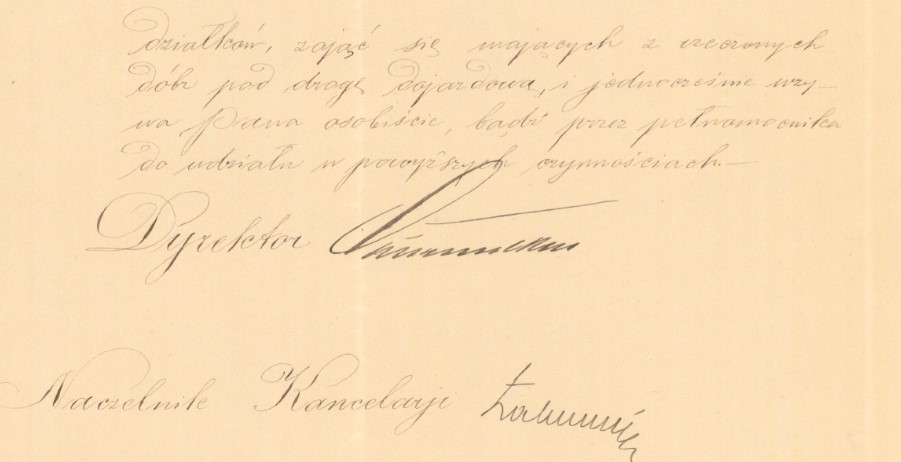 działków, zająć się mających z rzeczonych
dóbr pod drogę dojazdową, i jednocześnie wzy-
wa Pana osobiście, bądź przez pełnomocnika
do udziału w powyższych czynnościach.—
Dyrektor
Naczelnik Kancelarji